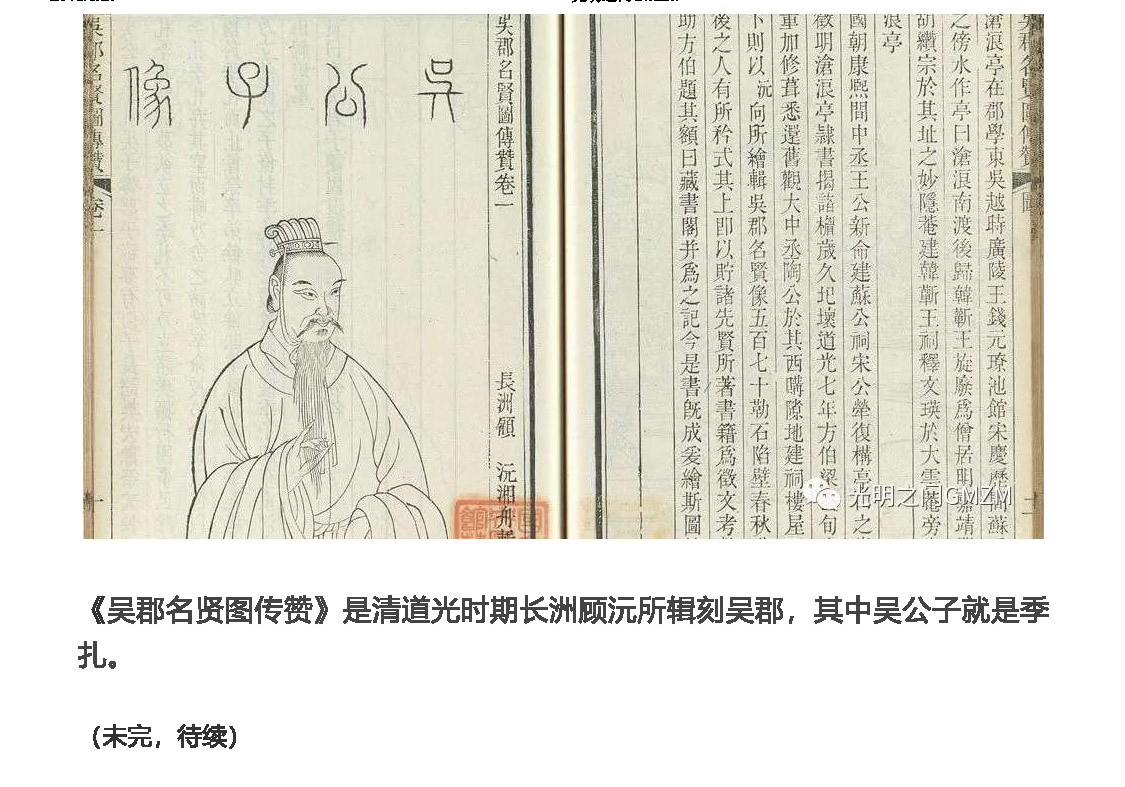 吳郡名賢圖傳贊 圖
滄浪亭在郡學東吳越時廣陵王錢元璙池館宋慶曆間蘇
之傍水作亭曰滄浪南渡後歸韓蘄王旋廢爲僧居明嘉靖
胡纘宗於其址之妙隱菴建韓蘄王祠釋文瑛於大雲菴旁
浪亭
國朝康熙間中丞王公新命建蘇公祠宋公犖復構亭 之
徵明滄浪亭隷書揭諸楣歲久圯壞道光七年方伯梁 旬
重加修葺悉還舊觀大中丞陶公於其西購隙地建祠樓屋
下則以沅向所繪輯吳郡名賢像五百七十勒石陷壁春秋
後之人有所矜式其上即以貯諸先賢所著書籍爲徵文考
助方伯題其額曰藏書閣并爲之記今是書旣成爰繪斯圖
吳郡名賢圖傳贊卷一 長洲顧 沅湘舟
吳公子像
吳郡名賢圖傳贊 卷一 一
光明之门GMZM
《吴郡名贤图传赞》是清道光时期长洲顾沅所辑刻吴郡，其中吴公子就是季
扎。
（未完，待续）